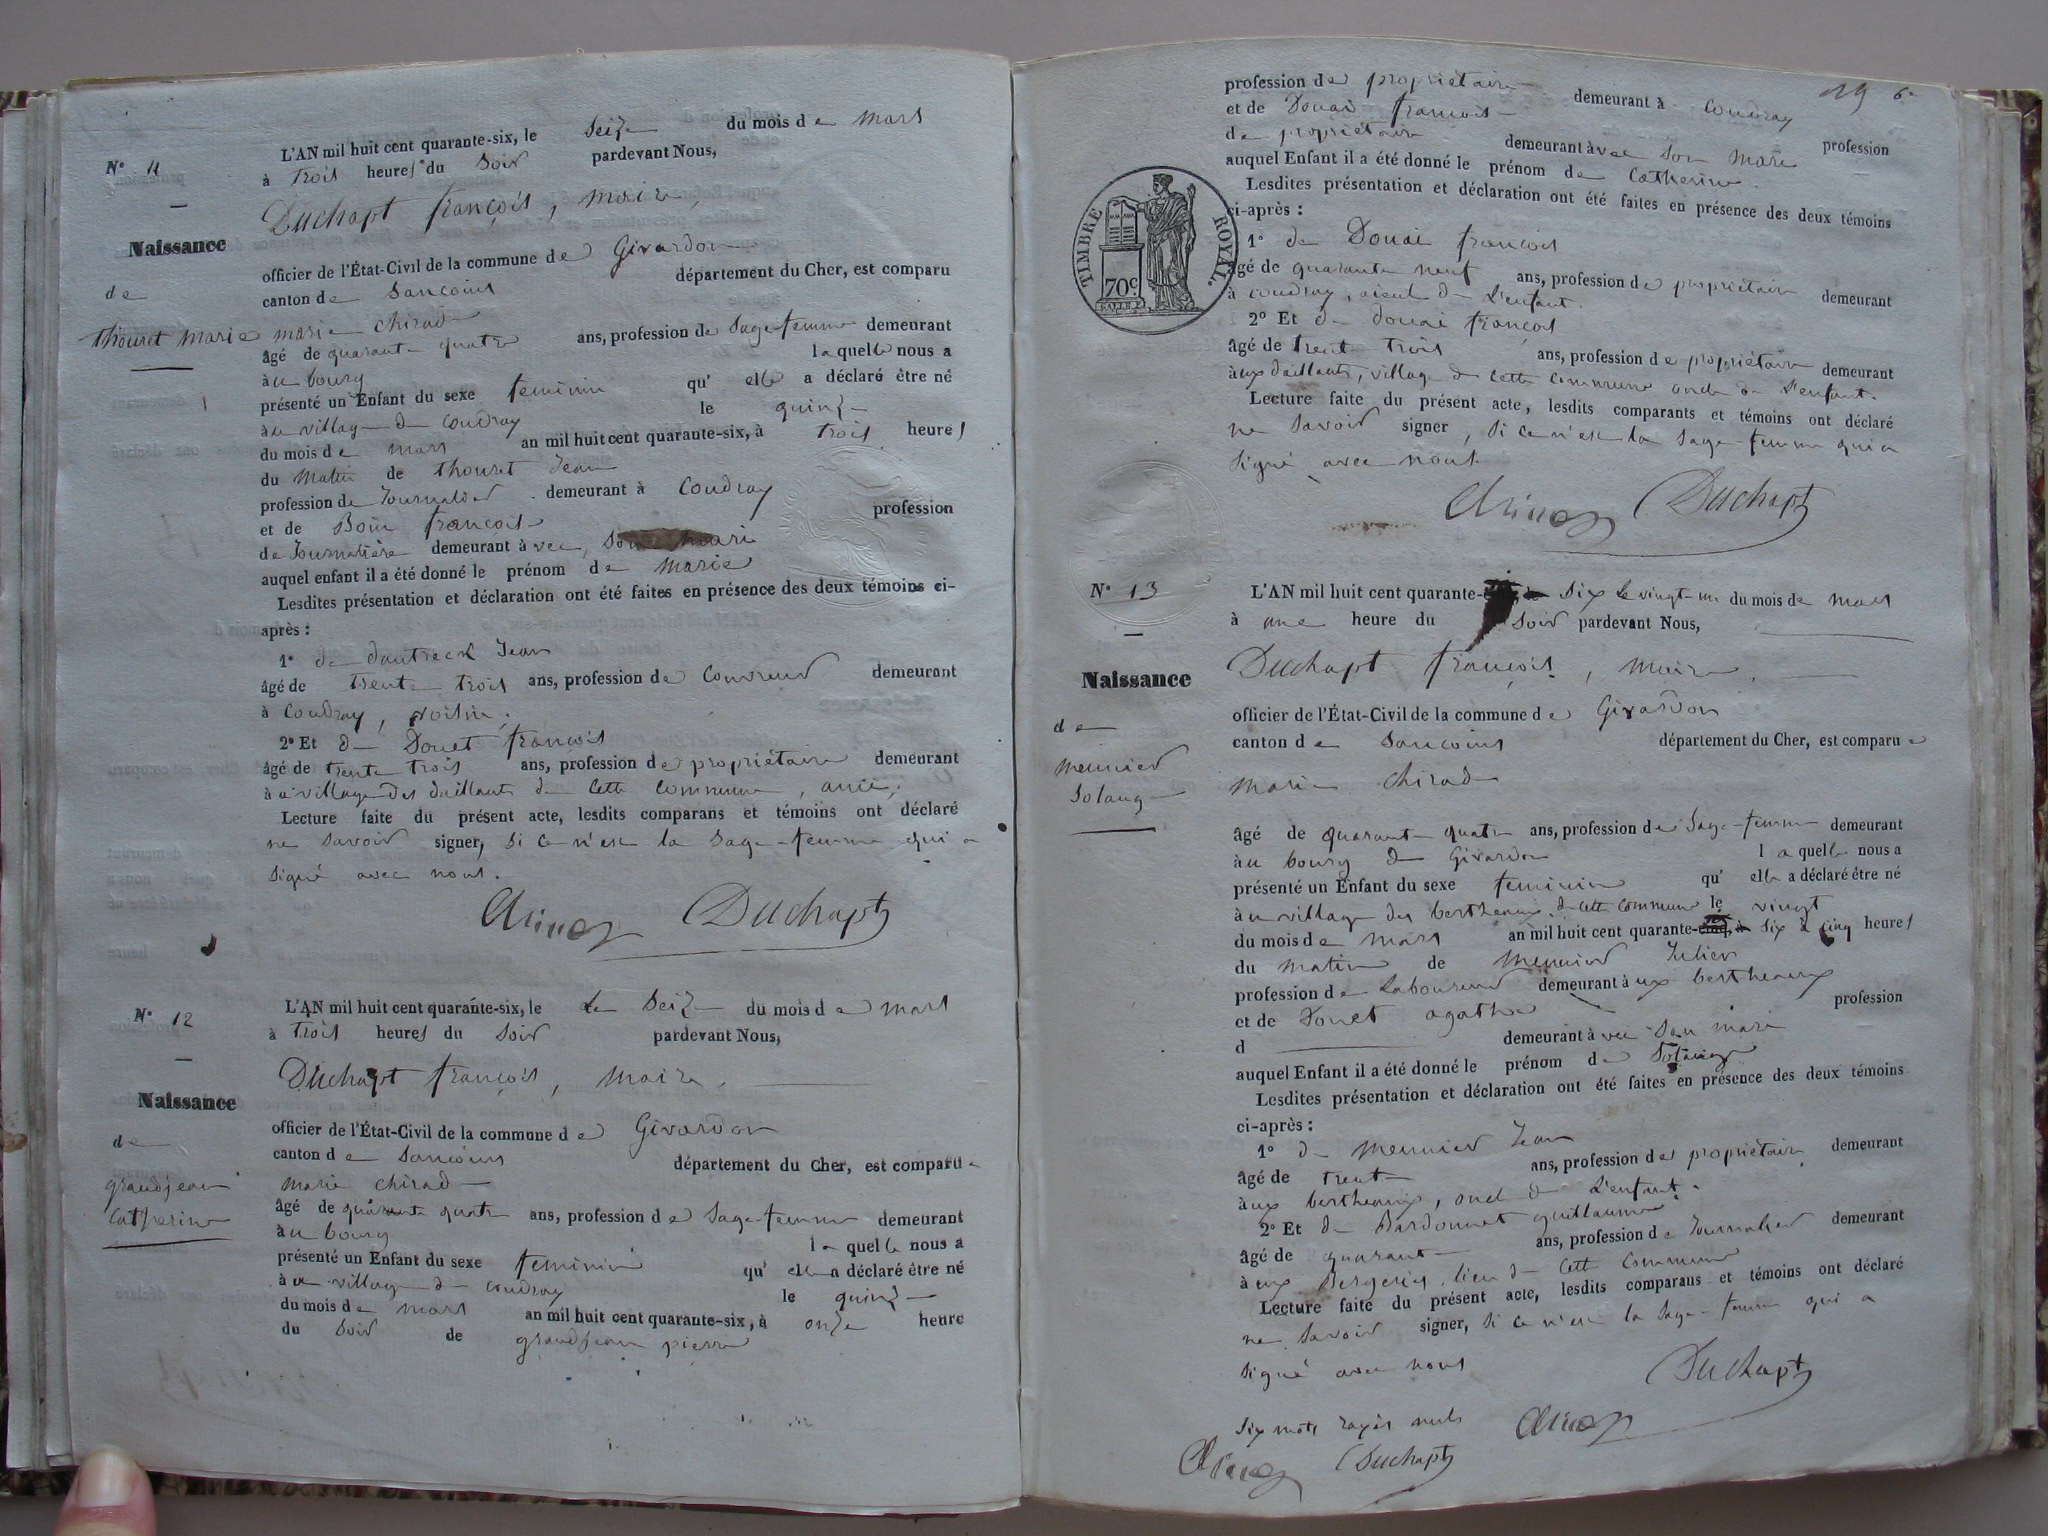 N° 11
Naissance
de
thouret marie
L'AN mil huit cent quarante-six, le seize du mois de mars
à trois heures du soir pardevant Nous,
Duchapt françois, maire,
officier de l'État-Civil de la commune de Givardon
canton de Sancoins département du Cher, est comparu
marie chirade
âgé de quarante quatre ans, profession de Sage-femme demeurant
à u bourg laquelle nous a
présenté un Enfant du sexe feminin qu' elle a déclaré être né
à u village de coudray le quinze
du mois de mars an mil huit cent quarante-six, à trois heures
du matin de thouret Jean
profession de Journalier demeurant à Coudray
et de Boin françoise profession
de Journalière demeurant à vec son mari
auquel enfant il a été donné le prénom de marie
Lesdites présentation et déclaration ont été faites en présence des deux témoins ci-
après :
1° de dautreck Jean
âgé de trente trois ans, profession de Couvreur demeurant
à Coudray, voisin,
2° Et de Douet françois
âgé de trente trois ans, profession de propriétaire demeurant
à u village des daillants de cette commune, amie,
Lecture faite du présent acte, lesdits comparans et témoins ont déclaré
ne savoir signer, si ce n'est la sage-femme qui a
signé avec nous.
Duchapt
N° 12
Naissance
de
grandjean
Catherine
L'AN mil huit cent quarante-six, le le seize du mois de mars
à trois heures du soir pardevant Nous,
Duchapt françois, maire,
officier de l'État-Civil de la commune de Givardon
canton de Sancoins département du Cher, est comparue
marie chirade
âgé de quarante quatre ans, profession de Sage-femme demeurant
à u bourg laquelle nous a
présenté un Enfant du sexe feminin qu' elle a déclaré être né
à u village de coudray le quinze
du mois de mars an mil huit cent quarante-six, à onze heure
du soir de grandjean pierre
19 6e
profession de propriétaire demeurant à Coudray
et de Douai françoise profession
de propriétaire demeurant à vec son mari
auquel Enfant il a été donné le prénom de Catherine
Lesdites présentation et déclaration ont été faites en présence des deux témoins
ci-après :
TIMBRE ROYAL.
70c
1° de Douai françois
âgé de quarante neuf ans, profession de propriétaire demeurant
à coudray, aieul de L'enfant.
2° Et de douai françois
âgé de trente trois ans, profession de propriétaire demeurant
à ux daillants, village de cette commune oncle de L'enfant.
Lecture faite du présent acte, lesdits comparants et témoins ont déclaré
ne savoir signer, si ce n'est la sage-femme qui a
signé avec nous.
Duchapt
N° 13
Naissance
de
meunier
Solange
L'AN mil huit cent quarante- six le vingt-un du mois de mars
à une heure du soir pardevant Nous,
Duchapt françois, maire,
officier de l'État-Civil de la commune de Givardon
canton de Sancoins département du Cher, est comparue
marie chirade
âgé de quarante quatre ans, profession de Sage-femme demeurant
à u bourg de Givardon laquelle nous a
présenté un Enfant du sexe feminin qu' elle a déclaré être né
à u village des bertheaux de cette commune le vingt
du mois de mars an mil huit cent quarante-cinq, à six à cinq heures
du matin de meunier Julien
profession de Laboureur demeurant à ux bertheaux
et de Douet agathe profession
d demeurant à vec son mari
auquel Enfant il a été donné le prénom de Solange
Lesdites présentation et déclaration ont été faites en présence des deux témoins
ci-après :
1° de meunier Jean
âgé de trente ans, profession de propriétaire demeurant
à ux bertheaux, oncle de L'enfant.
2° Et de Bardonnet guillaume
âgé de quarante ans, profession de Journalier demeurant
à ux Bergeries, lieu de cette commune
Lecture faite du présent acte, lesdits comparans et témoins ont déclaré
ne savoir signer, si ce n'est la sage-femme qui a
signé avec nous
Duchapt
six mots rayés nuls
Duchapt